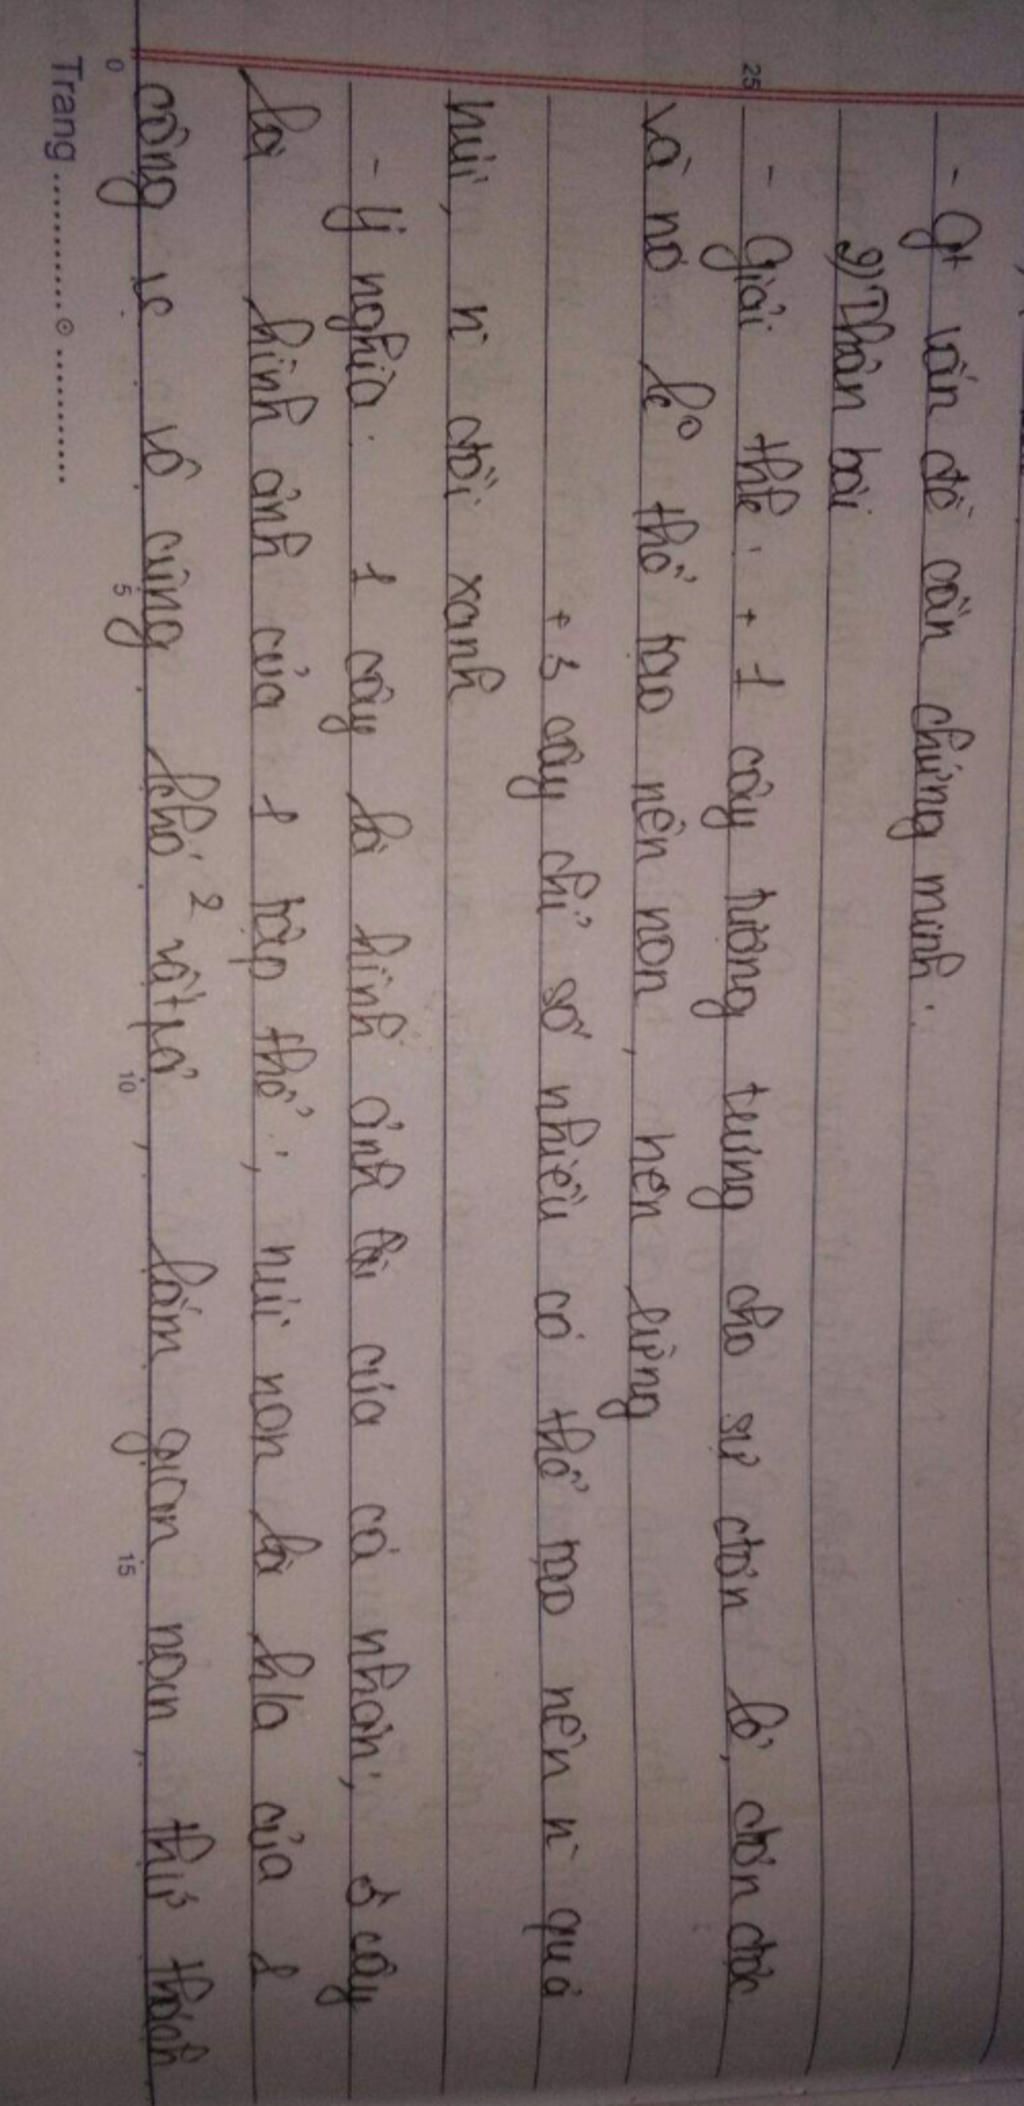 - Gt vấn đề cần chứng minh.
2) Thân bài
- Giải thik: + 1 cây tượng trưng cho sự đơn lẻ, đơn độc
và nó k thể tạo nên non, nên rừng
+ 3 cây chỉ số nhiều có thể tạo nên n quả
núi, n đồi xanh
- Ý nghĩa: 1 cây là hình ảnh của cá nhân; 3 cây
là hình ảnh của 1 tập thể; núi non là h/a của 1
công vc vô cùng khó², vất vả, lắm gian nan, thử thách
Trang
0 5 10 15
25